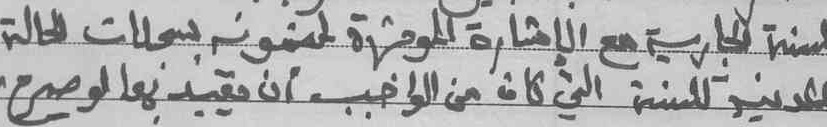 لسنة الجارية مع الإشارة الموجزة لمضمونه بسجلات الحالة
المدنية للسنة التي كان من الواجب أن يقيد بها لو صرح